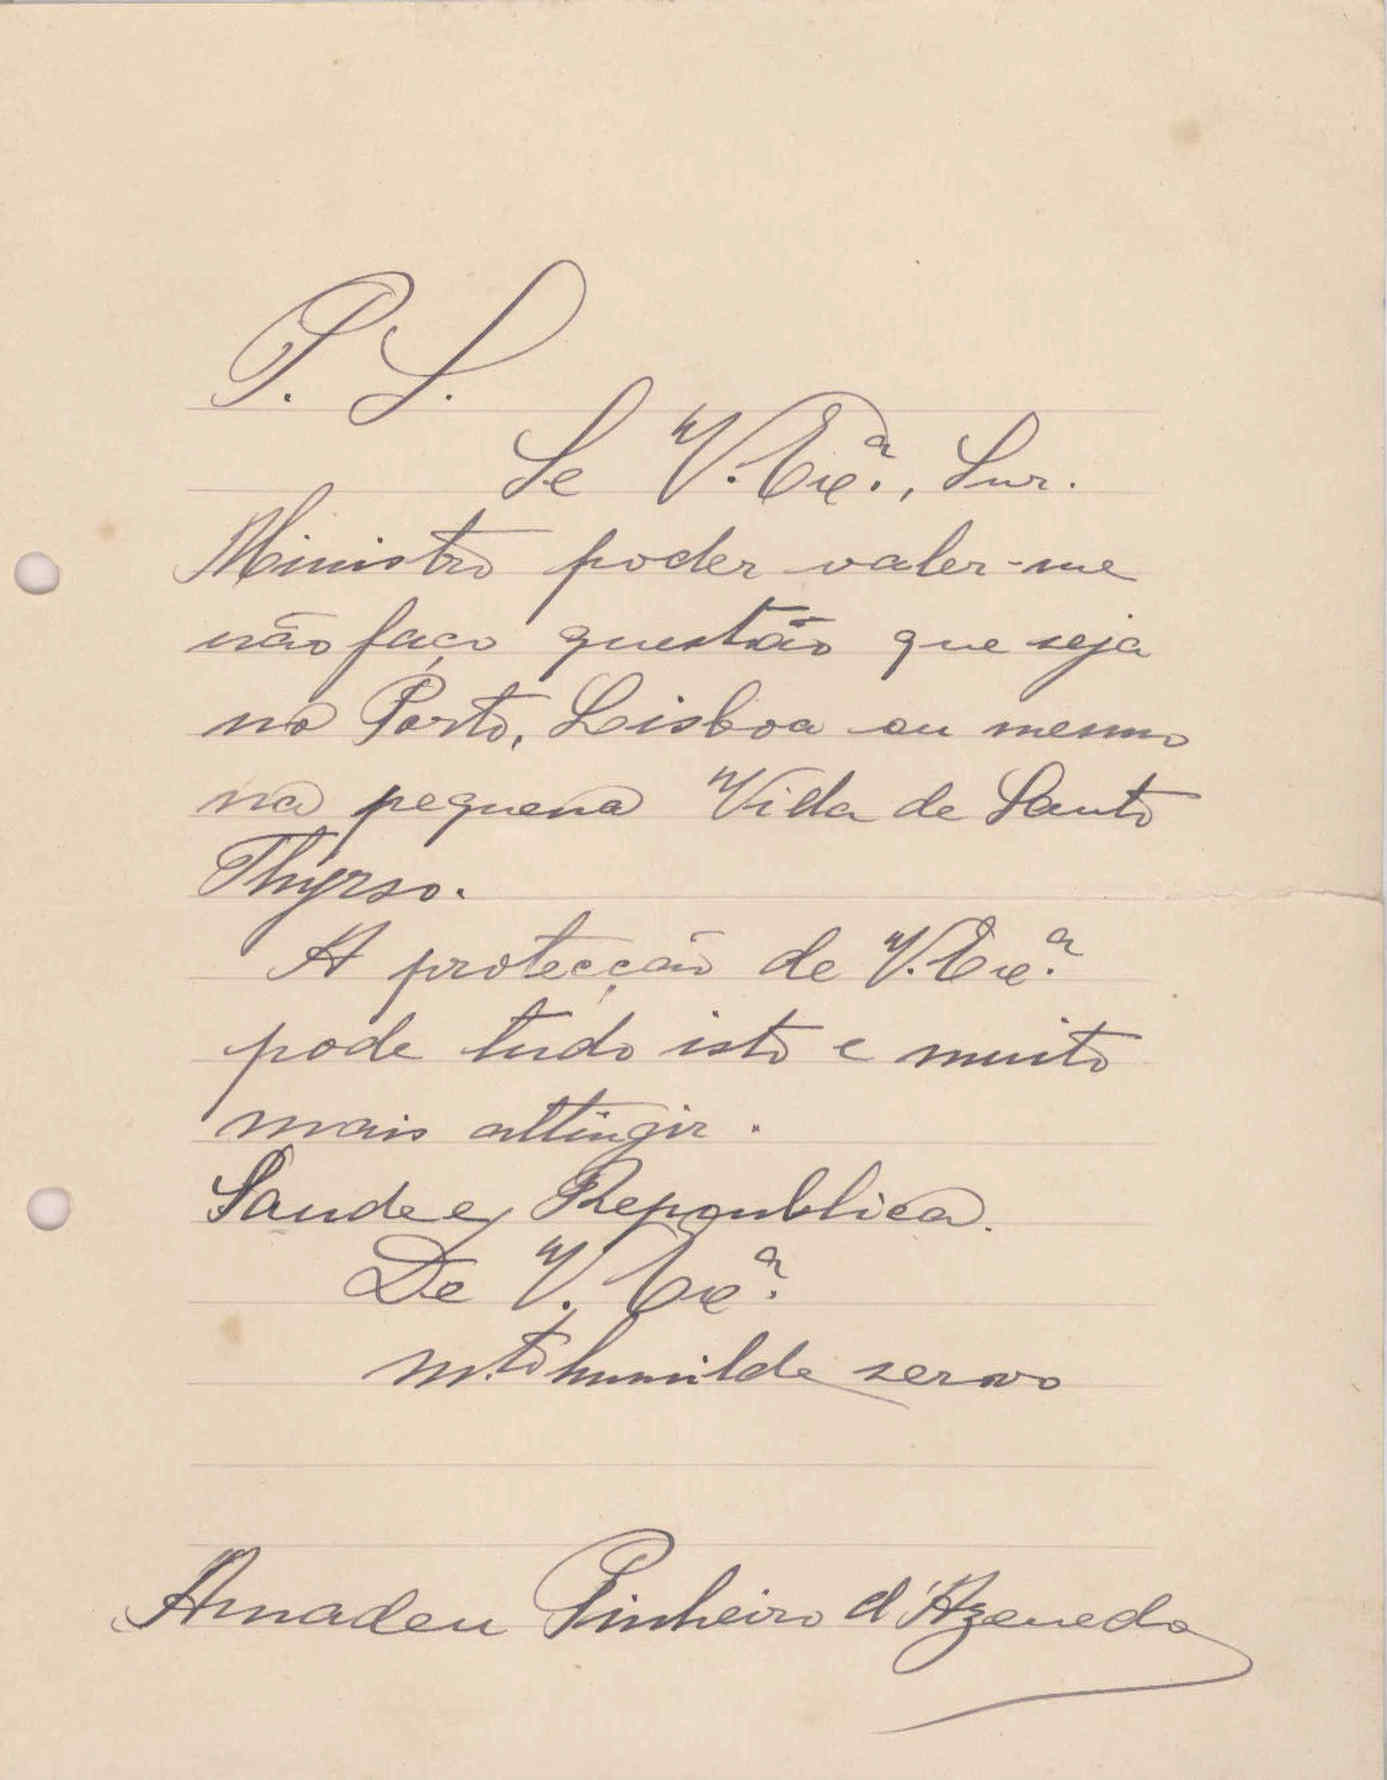 P. S.
Se V. Ex.ª, Snr.
Ministro poder valer-me
não faço questão que seja
no Porto, Lisboa ou mesmo
na pequena Villa de Santo
Thyrso.
A protecção de V. Ex.ª
pode tudo isto e muito
mais attingir.
Saude e Republica.
De V. Ex.ª
m.to humilde servo
Amadeu Pinheiro d'Azevedo